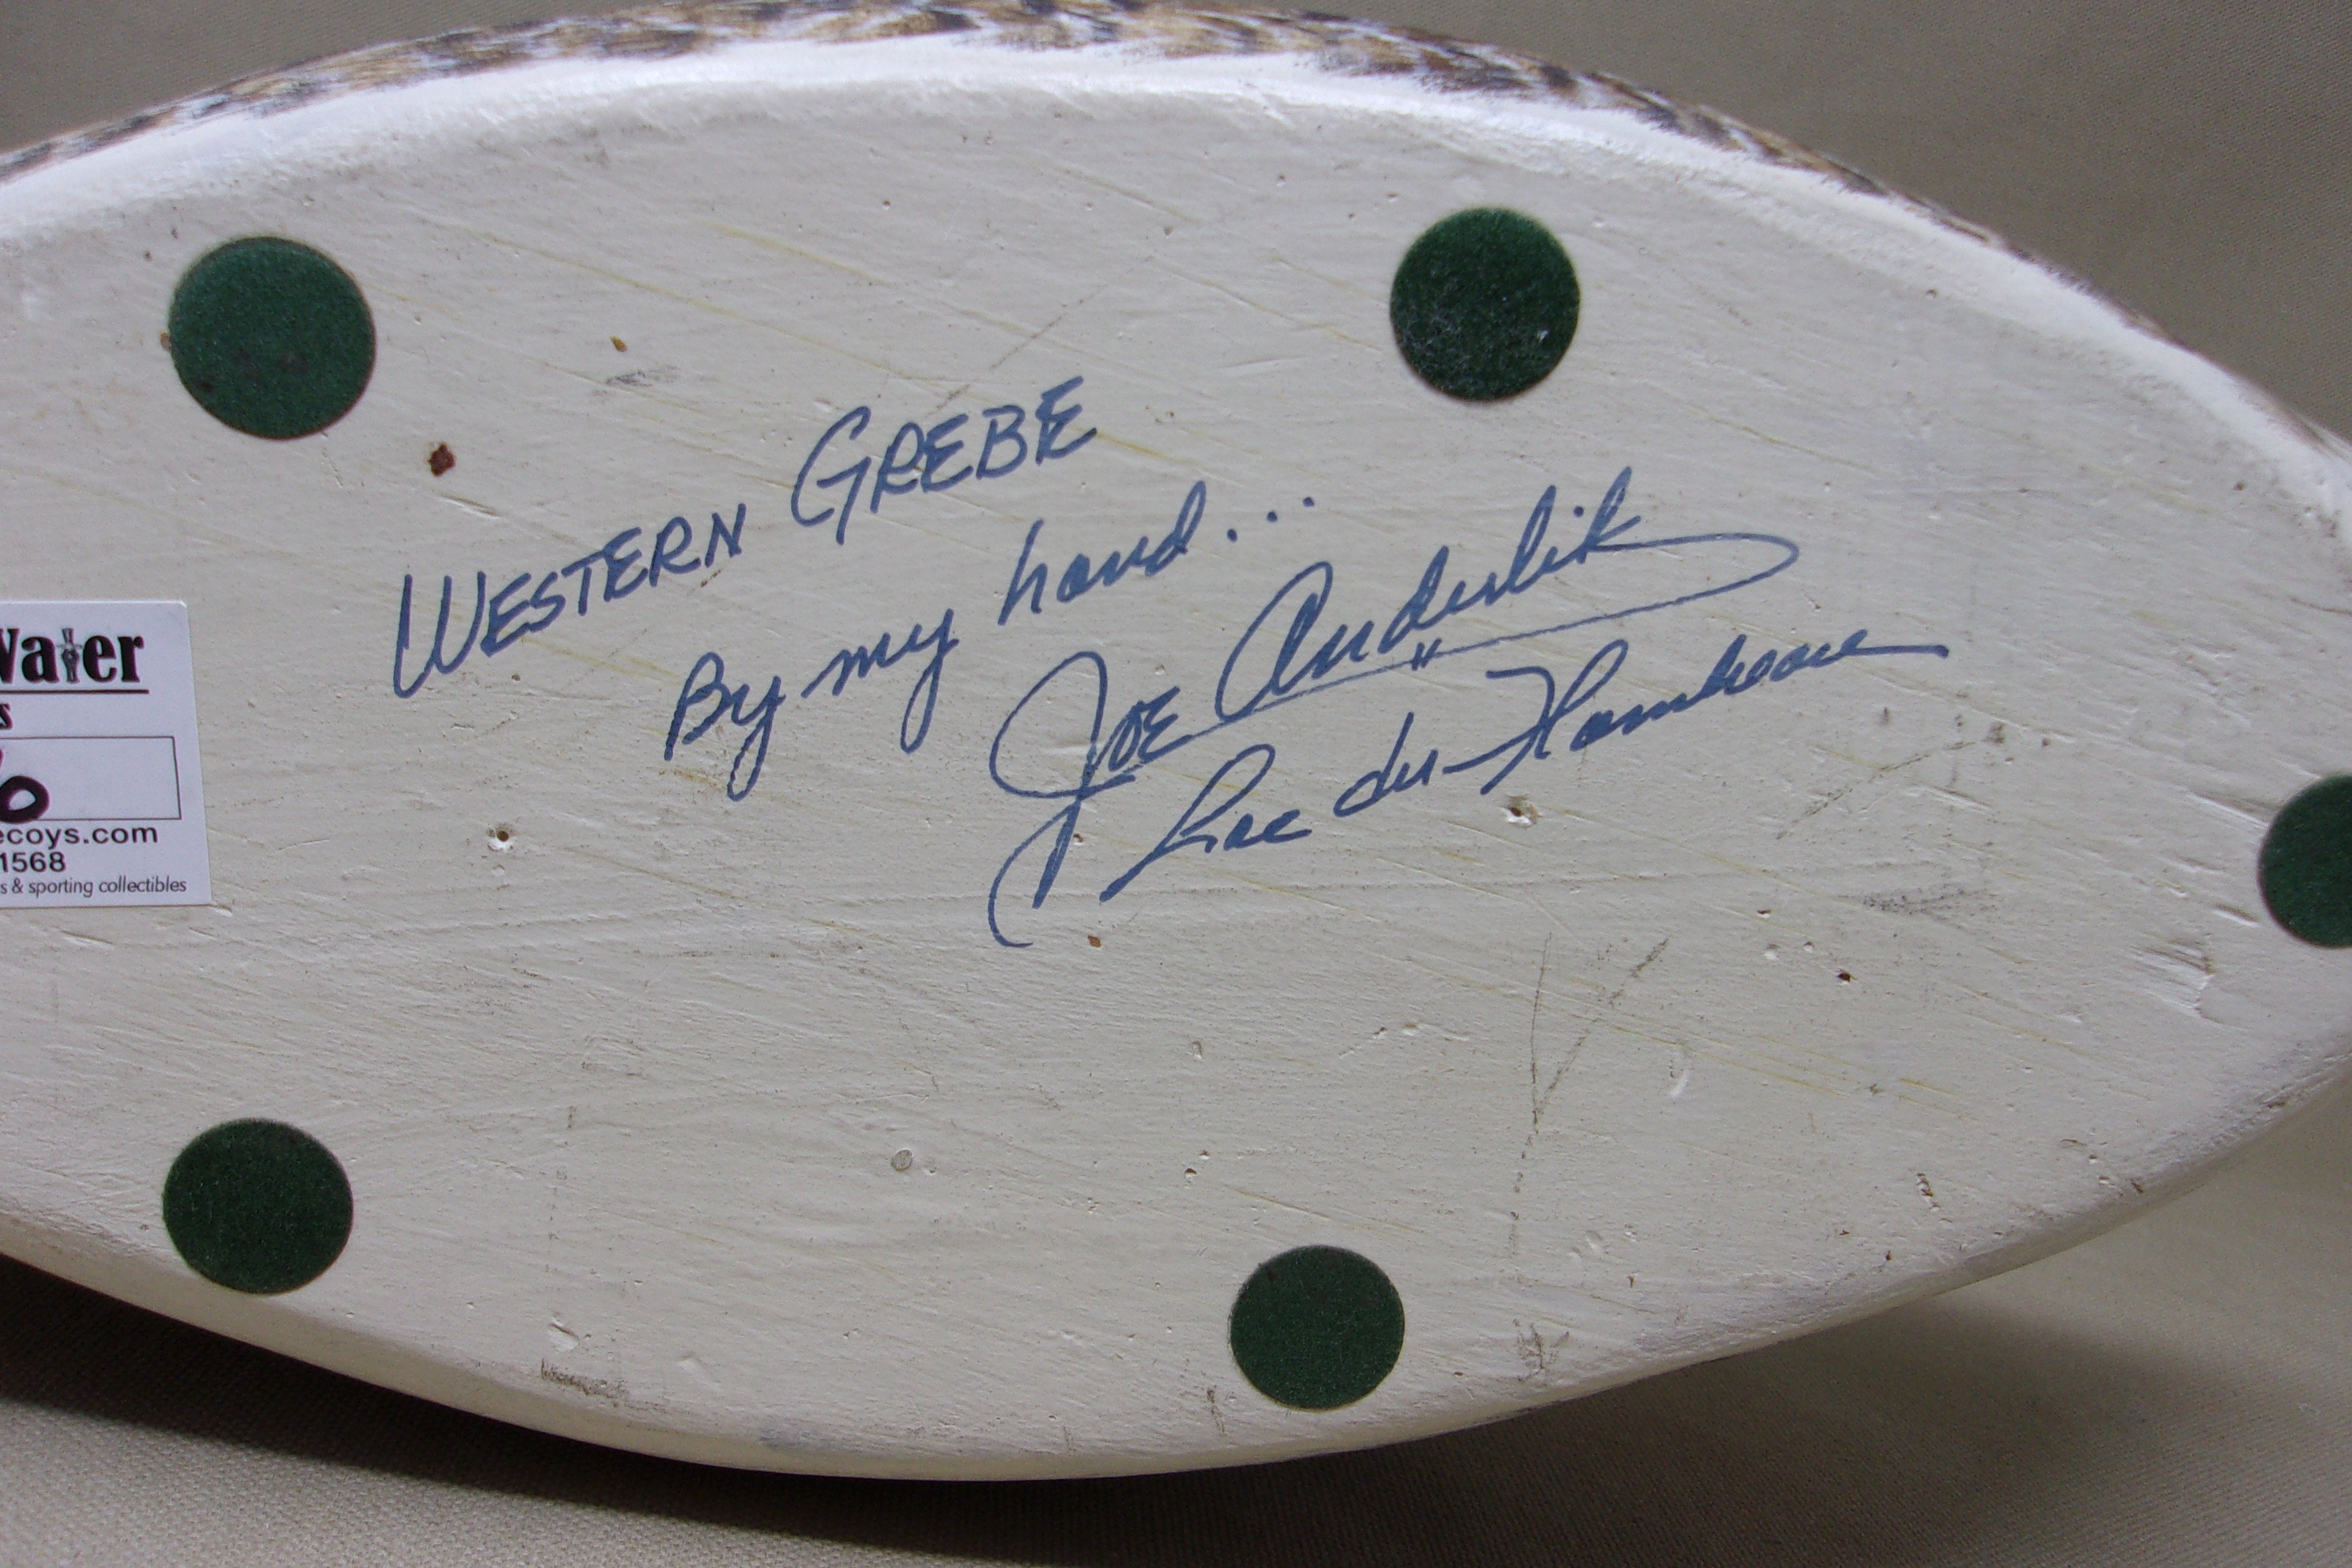 WESTERN GREBE
By my hand...
Joe Anderlik
Lac du Flambeau
Water
s
6
ecoys.com
1568
s & sporting collectibles